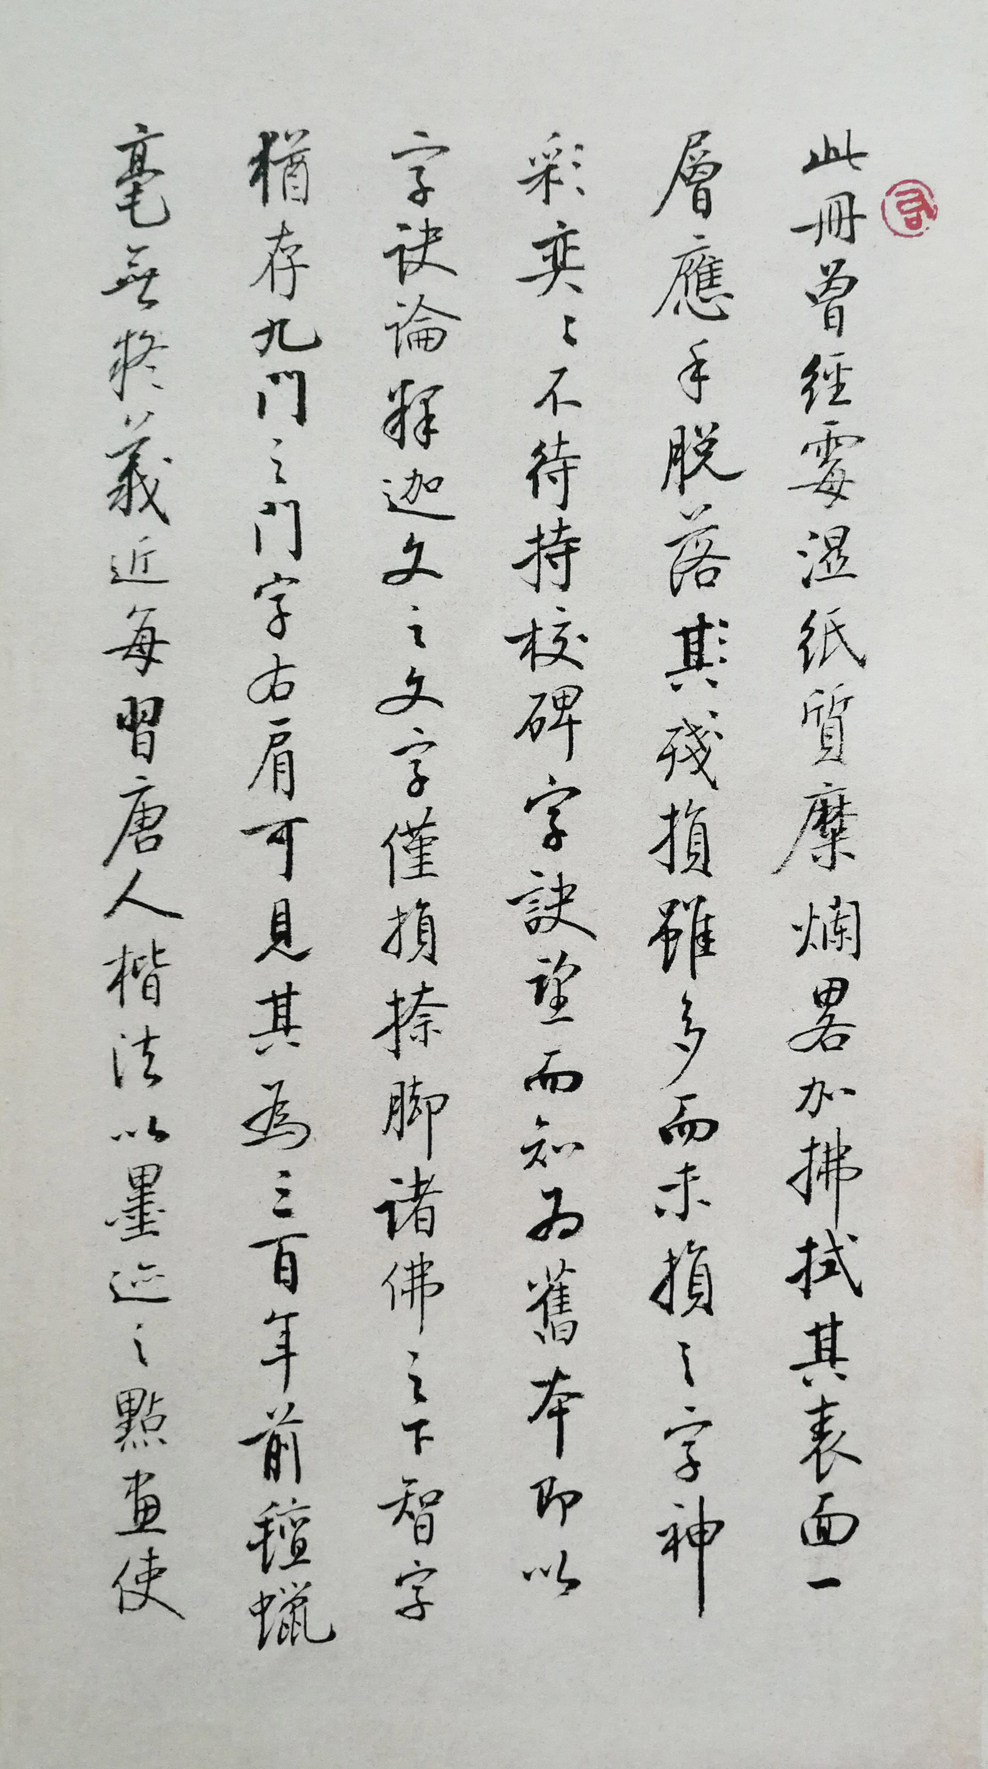 此冊曾經霉濕紙質糜爛畧加拂拭其表面一
層應手脫落其殘損雖多而未損之字神
彩奕〻不待持校碑字訣望而知為舊本即以
字訣論釋迦文之文字僅損捺脚諸佛之下智字
猶存九門之門字右肩可見其為三百年前氊蠟
毫無疑義近每習唐人楷法以墨迹之點畫使